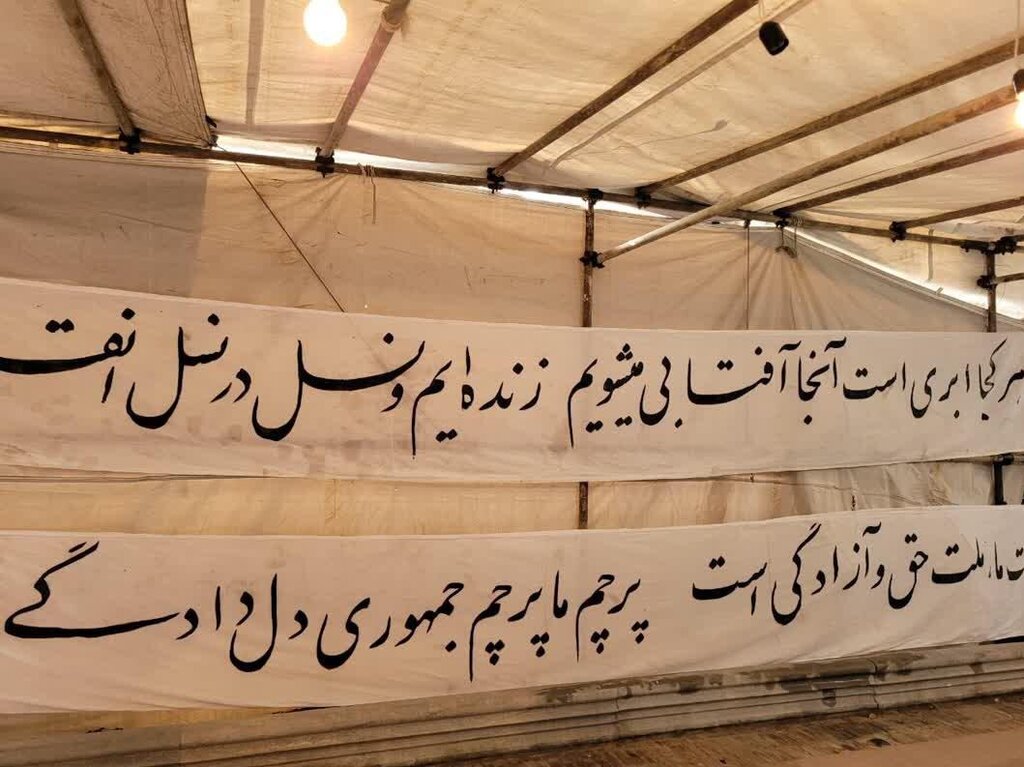 هر کجا ابری است آنجا آفتابی میشویم زنده ایم و نسل در نسل
ما، ملت حق و آزادگی است پرچم ما پرچم جمهوری دلدادگی